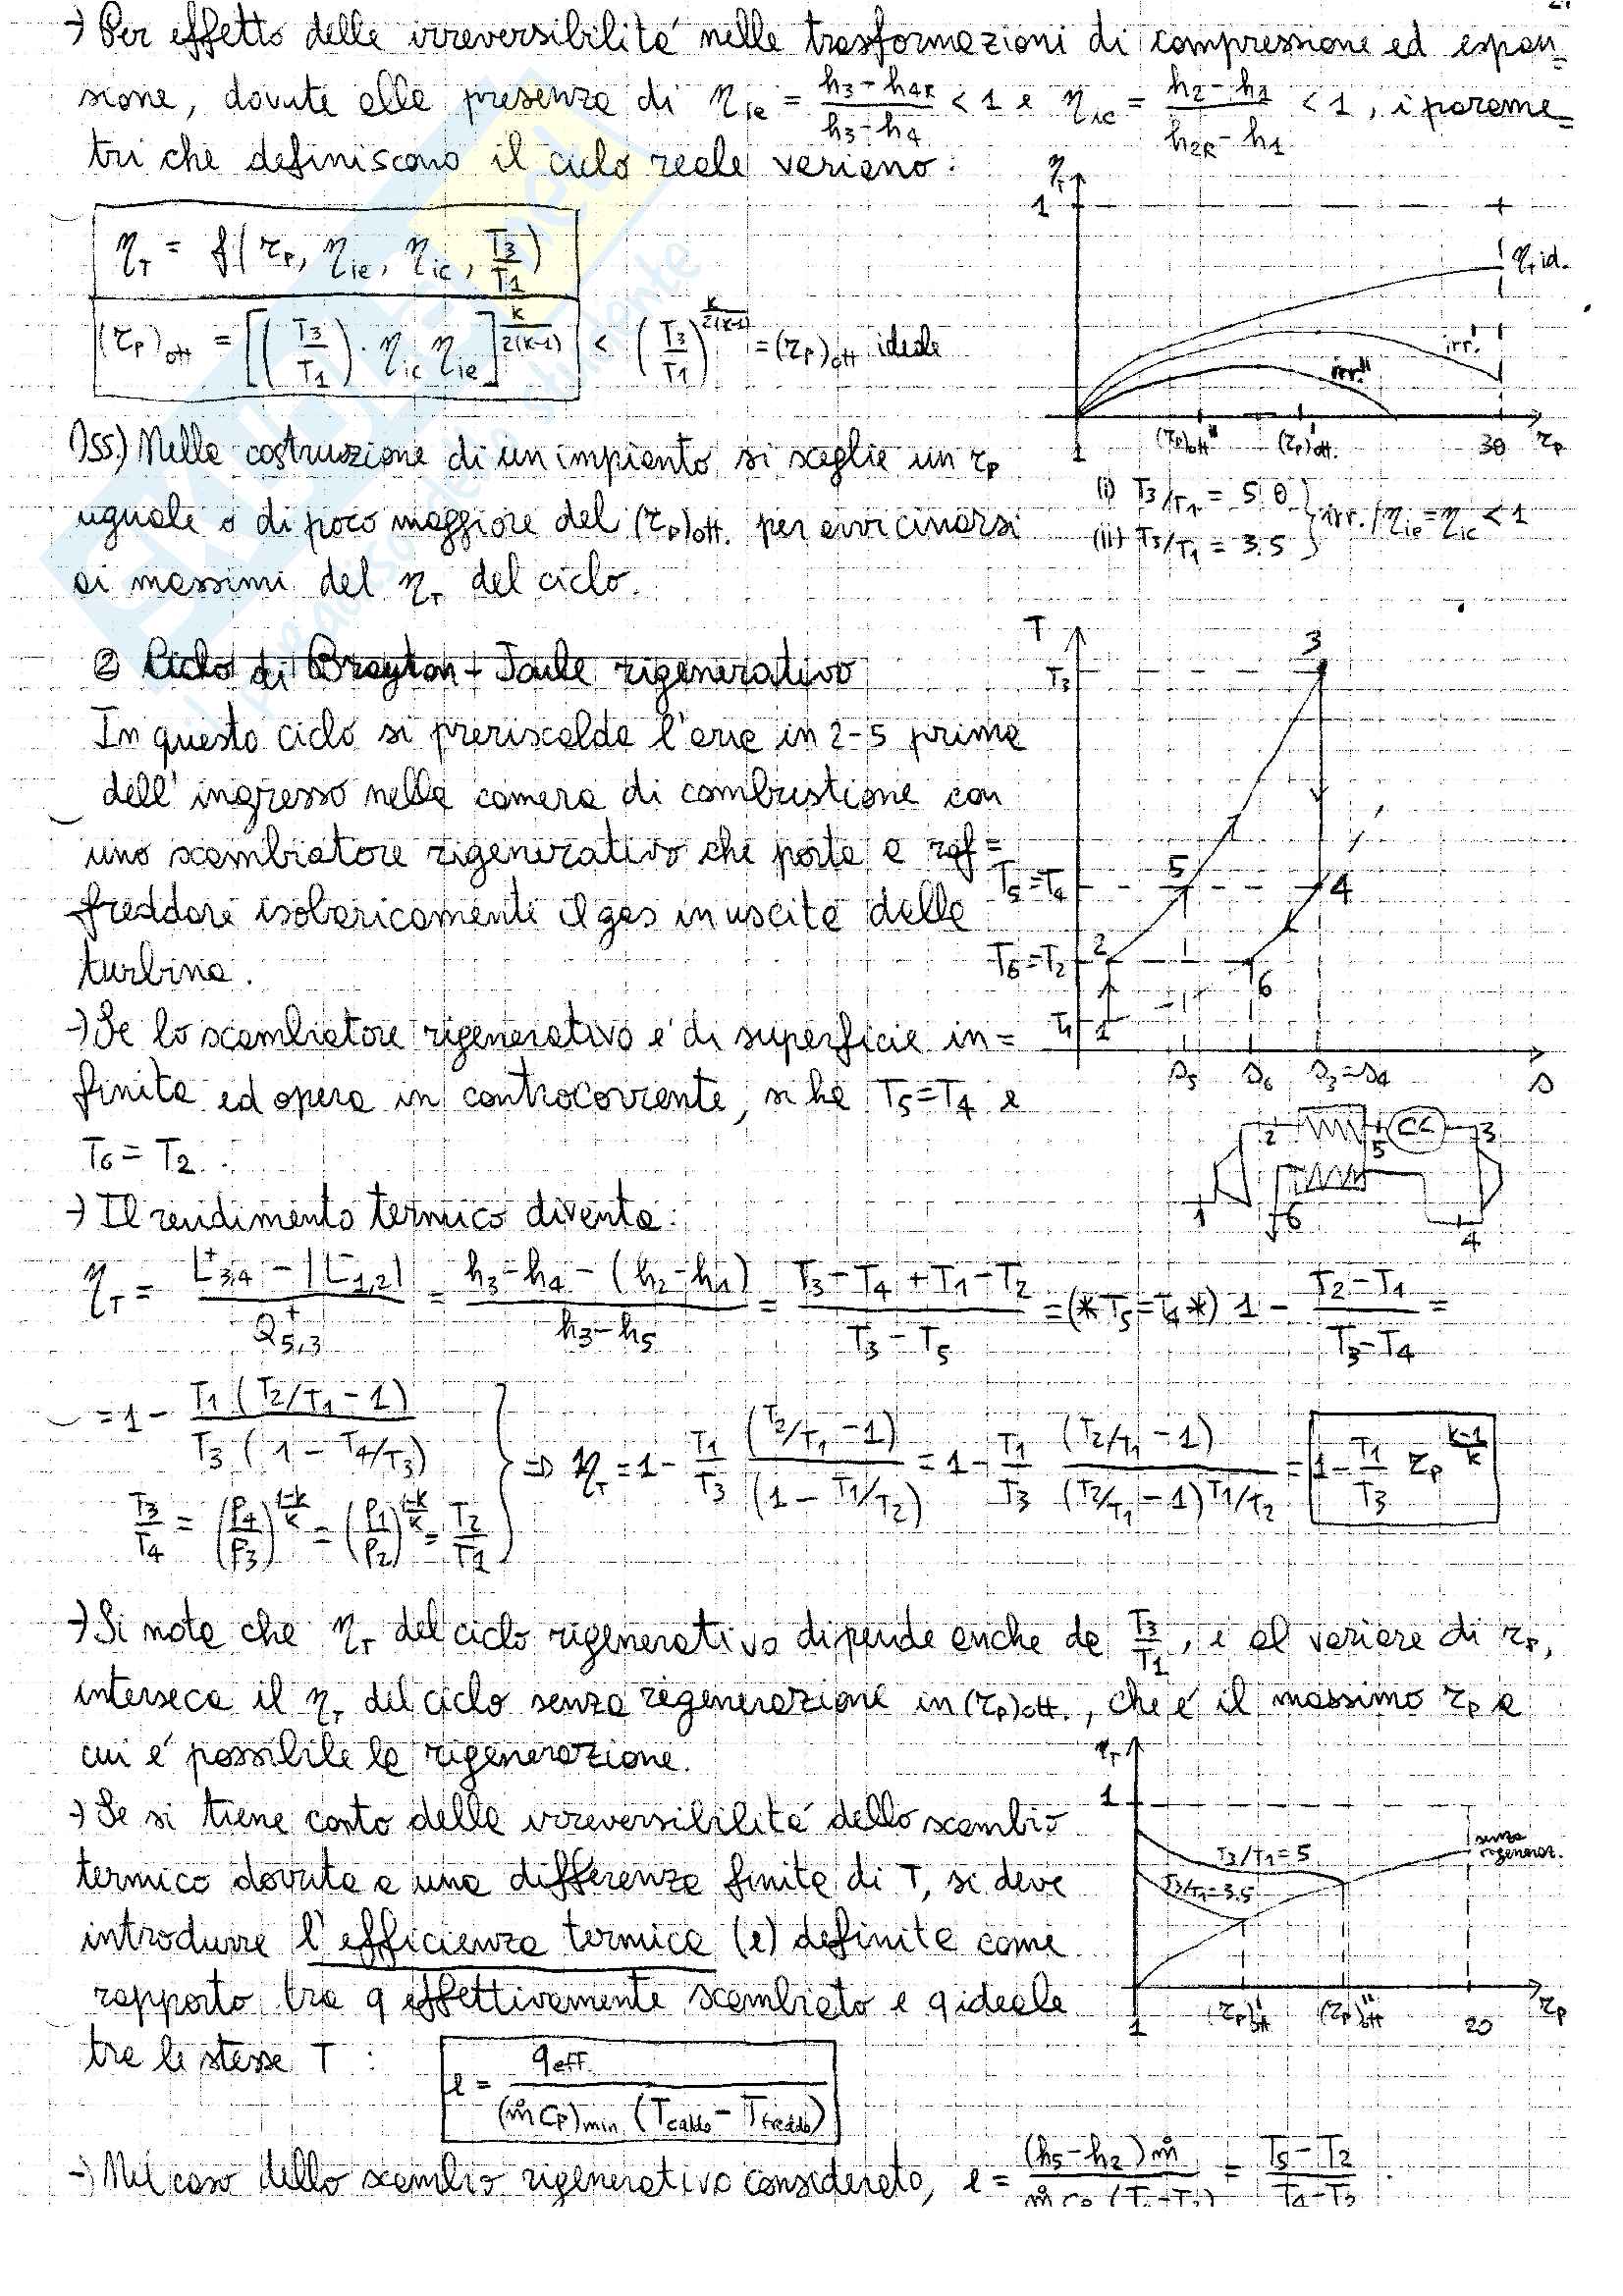 → Per effetto delle irreversibilità nelle trasformazioni di compressione ed espan=
sione, dovute alla presenza di η_ie = (h3 - h4R)/(h3 - h4) < 1 e η_ic = (h2 - h1)/(h2R - h1) < 1, i parame=
tri che definiscono il ciclo reale variano:
η_T = f(r_p, η_ie, η_ic, T3/T1)
(r_p)ott = [(T3/T1) · η_ic η_ie]^(k/2(k-1)) < (T3/T1)^(k/2(k-1)) = (r_p)ott ideale
η_T
1
η_T id.
irr.'
irr."
1 (r_p)ott" (r_p)'ott. 30 r_p
Oss.) Nella costruzione di un impianto si sceglie un r_p
uguale o di poco maggiore del (r_p)ott. per avvicinarsi
ai massimi del η_T del ciclo.
(i) T3/T1 = 5.0
(ii) T3/T1 = 3.5
} irr. / η_ie = η_ic < 1
② Ciclo di Brayton - Joule rigenerativo
In questo ciclo si preriscalda l'aria in 2-5 prima
dell'ingresso nella camera di combustione con
uno scambiatore rigenerativo che porta a raf=
freddare isobaricamente il gas in uscita dalla
turbina.
T
T3 3
T5=T4 5 4
T6=T2 2 6
T1 1
s5 s6 s3=s4 s
→ Se lo scambiatore rigenerativo è di superficie in=
finita ed opera in controcorrente, si ha T5=T4 e
T6 = T2.
2 5 CC 3
1 6 4
→ Il rendimento termico diventa:
η_T = (L⁺3,4 - |L⁻1,2|)/Q⁺5,3 = (h3 - h4 - (h2 - h1))/(h3 - h5) = (T3 - T4 + T1 - T2)/(T3 - T5) = (* T5=T4 *) 1 - (T2 - T1)/(T3 - T4) =
= 1 - T1 (T2/T1 - 1)/T3 (1 - T4/T3)
T3/T4 = (P4/P3)^((1-k)/k) = (P1/P2)^((1-k)/k) = T2/T1
} ⇒ η_T = 1 - T1/T3 (T2/T1 - 1)/(1 - T1/T2) = 1 - T1/T3 (T2/T1 - 1)/((T2/T1 - 1) T1/T2) = 1 - T1/T3 r_p^((k-1)/k)
→ Si nota che η_T del ciclo rigenerativo dipende anche da T3/T1, e al variare di r_p,
interseca il η_T del ciclo senza rigenerazione in (r_p)ott., che è il massimo r_p a
cui è possibile la rigenerazione.
→ Se si tiene conto delle irreversibilità dello scambio
termico dovuta a una differenza finita di T, si deve
introdurre l'efficienza termica (e) definita come
rapporto tra q effettivamente scambiato e q ideale
tra le stesse T :
η_T
1
T3/T1 = 5
T3/T1=3.5
senza
rigeneraz.
1 (r_p)'ott (r_p)"ott 20 r_p
e = q eff./((ṁ cp)min (Tcaldo - Tfreddo))
→ Nel caso dello scambio rigenerativo considerato, e = (h5 - h2) ṁ/ṁ cp = (T5 - T2)/(T4 - T2)